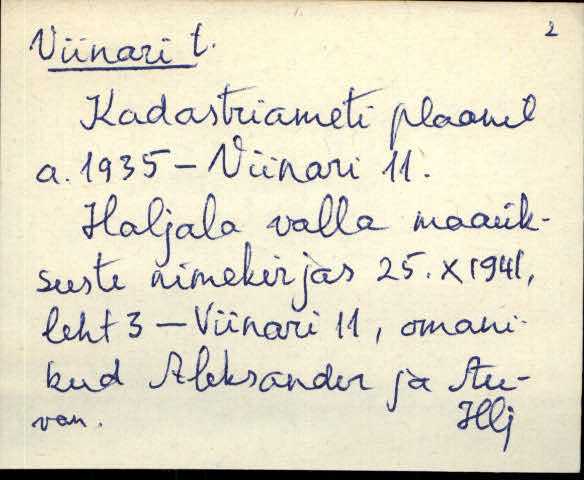 2
Viinari t.
Kadastriameti plaanil
a. 1935 – Viinari 11.
Haljala valla maaük-
suste nimekirjas 25. X 1941,
leht 3 – Viinari 11, omani-
kud Aleksander ja
van. Hlj